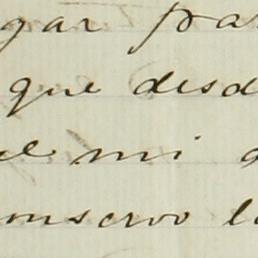 gar pa
que desd
el mi a
onservo l